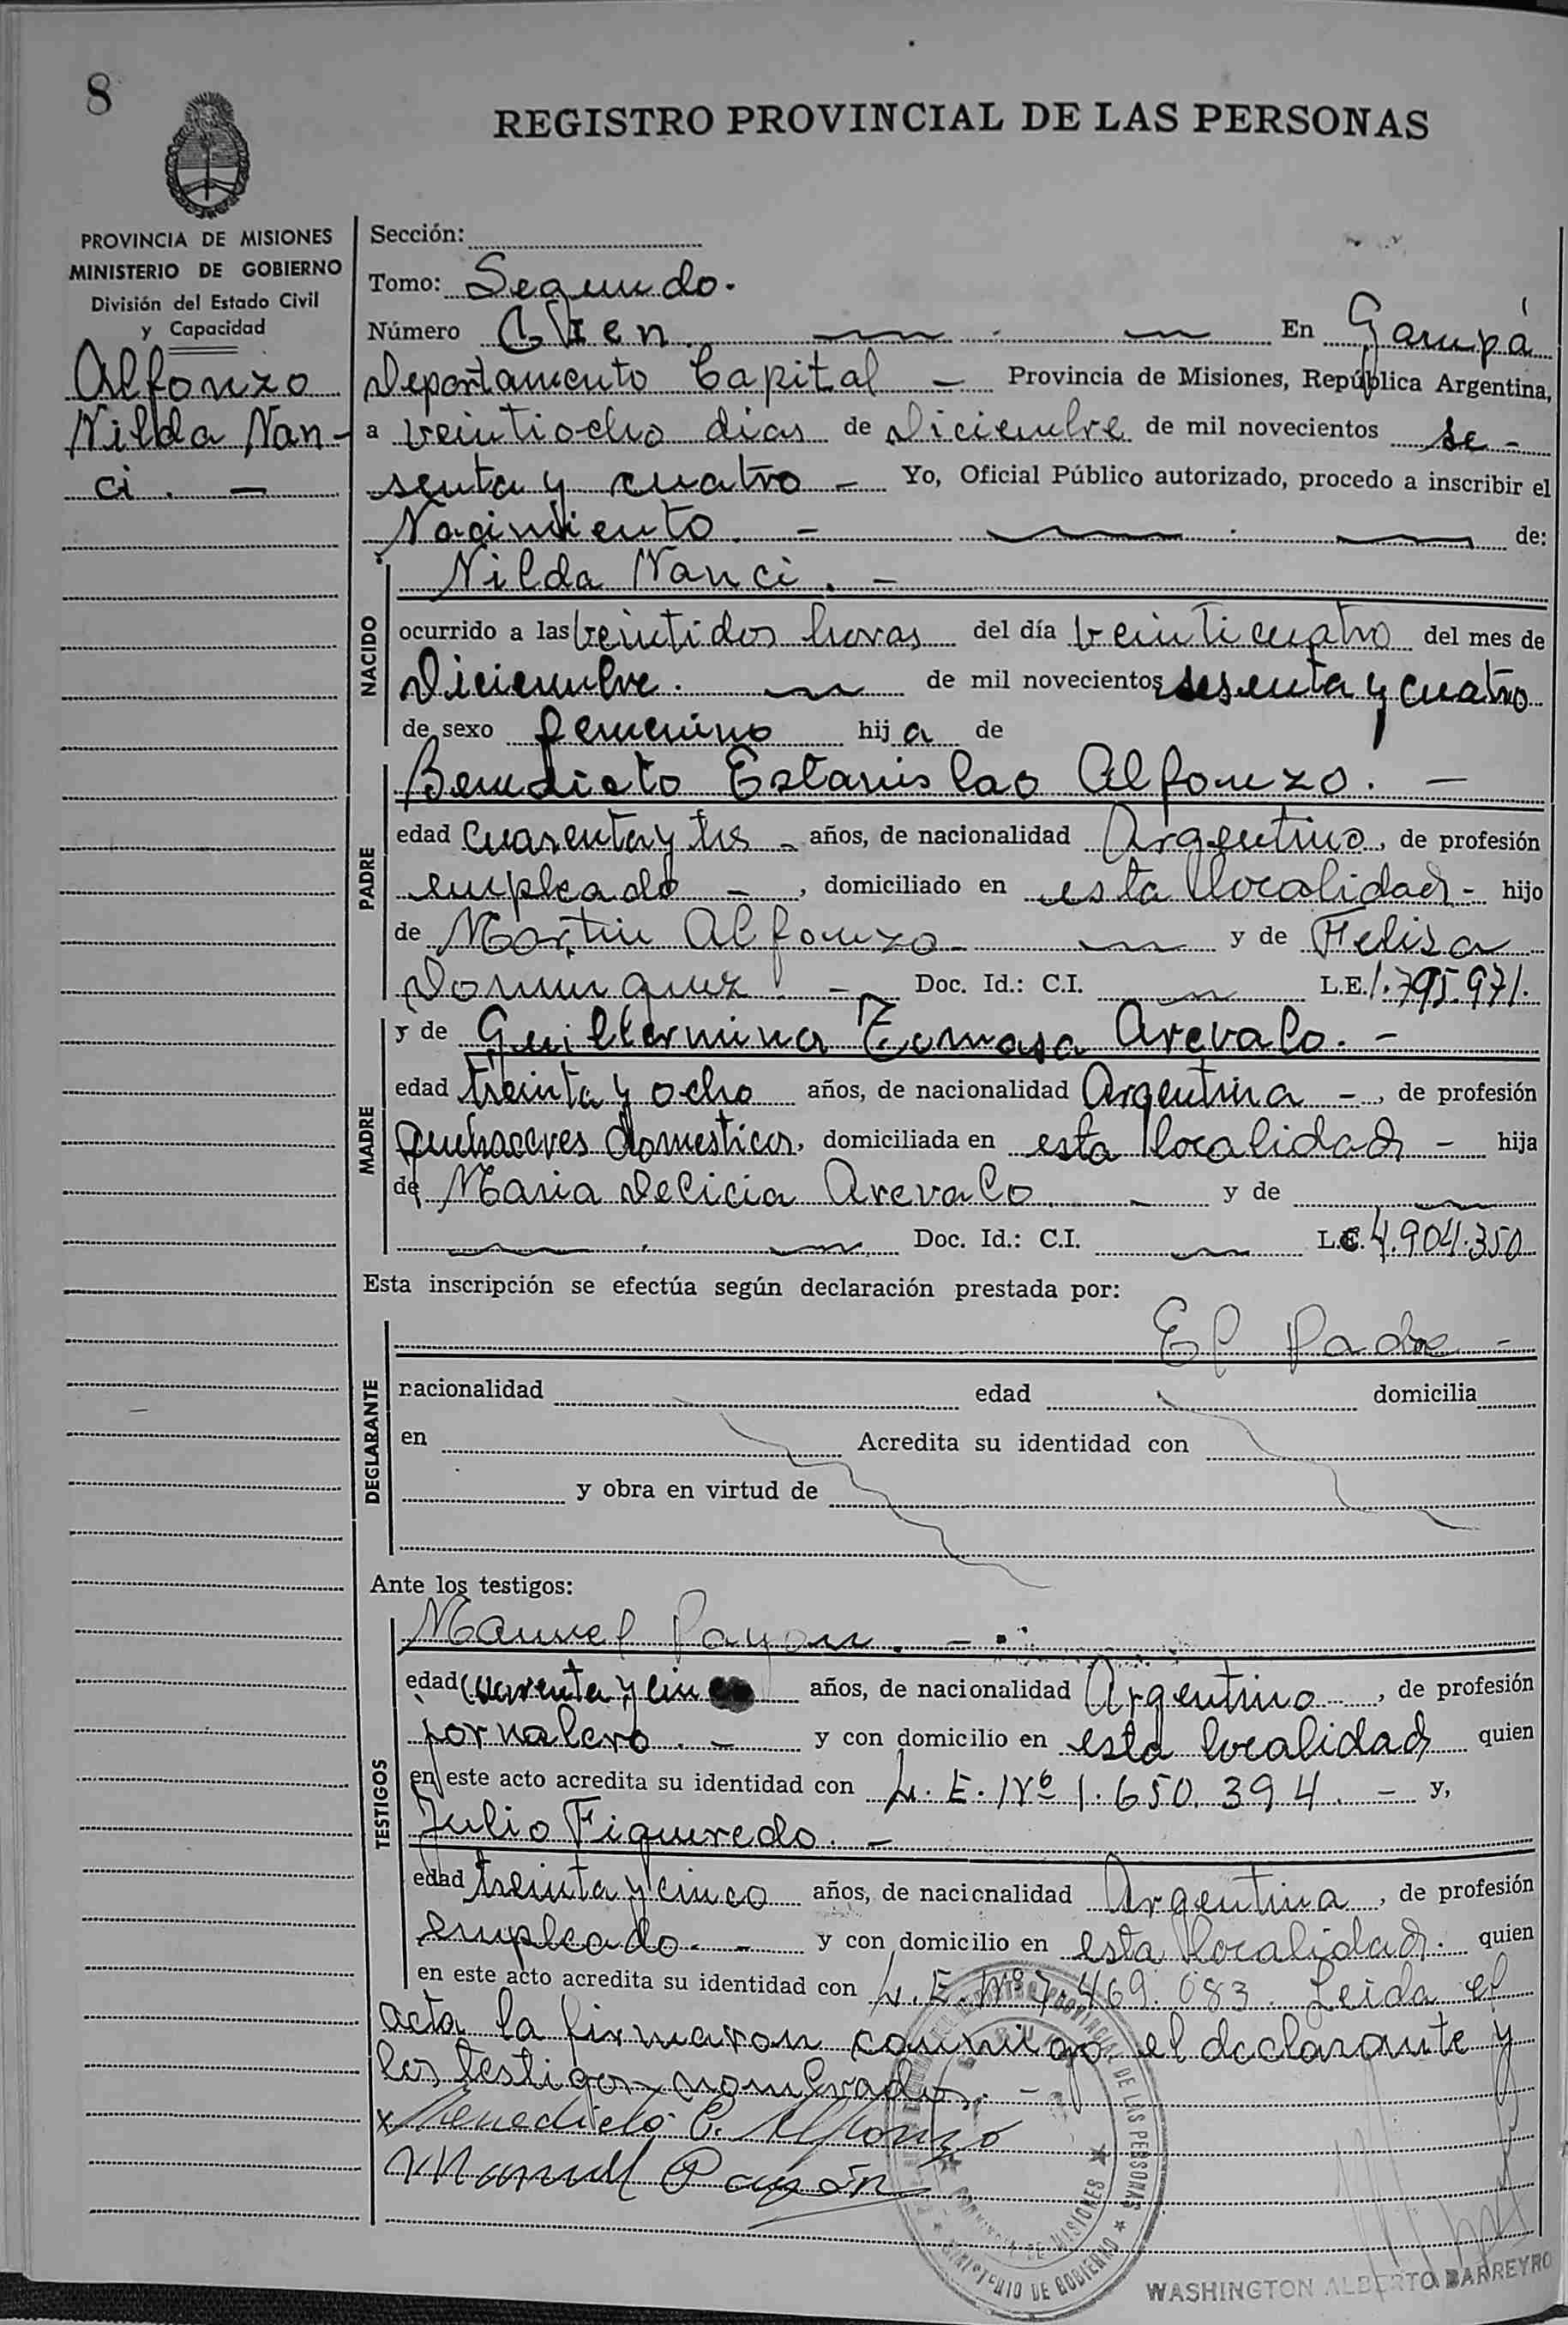 8
REGISTRO PROVINCIAL DE LAS PERSONAS
PROVINCIA DE MISIONES
MINISTERIO DE GOBIERNO
División del Estado Civil
y Capacidad
Alfonzo
Nilda Nan-
ci. -
Sección:
Tomo: Segundo.
Número Cien. En Garupá
Departamento Capital - Provincia de Misiones, República Argentina,
a veintiocho dias de Diciembre de mil novecientos se-
senta y cuatro - Yo, Oficial Público autorizado, procedo a inscribir el
Nacimiento. - de:
NACIDO
Nilda Nanci. -
ocurrido a las veintidos horas del día veinticuatro del mes de
Diciembre. de mil novecientos sesenta y cuatro
de sexo femenino hija de
PADRE
Benedicto Estanislao Alfonzo. -
edad cuarenta y tres - años, de nacionalidad Argentino, de profesión
empleado -, domiciliado en esta localidad - hijo
de Martin Alfonzo - y de Felisa
Dominguez. - Doc. Id.: C.I. L.E. 1.795.971.
MADRE
y de Guillermina Tomasa Arevalo. -
edad treinta y ocho años, de nacionalidad Argentina -, de profesión
quehaceres domesticos, domiciliada en esta localidad - hija
de Maria Delicia Arevalo. - y de
Doc. Id.: C.I. L.C. 4.904.350
Esta inscripción se efectúa según declaración prestada por:
DECLARANTE
El Padre -
nacionalidad edad domicilia
en Acredita su identidad con
y obra en virtud de
Ante los testigos:
TESTIGOS
Manuel Payon. -
edad cuarenta y cinco años, de nacionalidad Argentino, de profesión
jornalero. - y con domicilio en esta localidad quien
en este acto acredita su identidad con L.E. Nº 1.650.394. - y,
Julio Figueredo. -
edad treinta y cinco años, de nacionalidad Argentina, de profesión
empleado. - y con domicilio en esta localidad. quien
en este acto acredita su identidad con L.E. Nº 7.469.083. Leida el
acta la firmaron conmigo el declarante y
los testigos nombrados. -
x Benedicto E. Alfonzo
x Manuel Payón
PROVINCIAL DE LAS PERSONAS
PROVINCIA DE MISIONES
MINISTERIO DE GOBIERNO
WASHINGTON ALBERTO BARREYRO